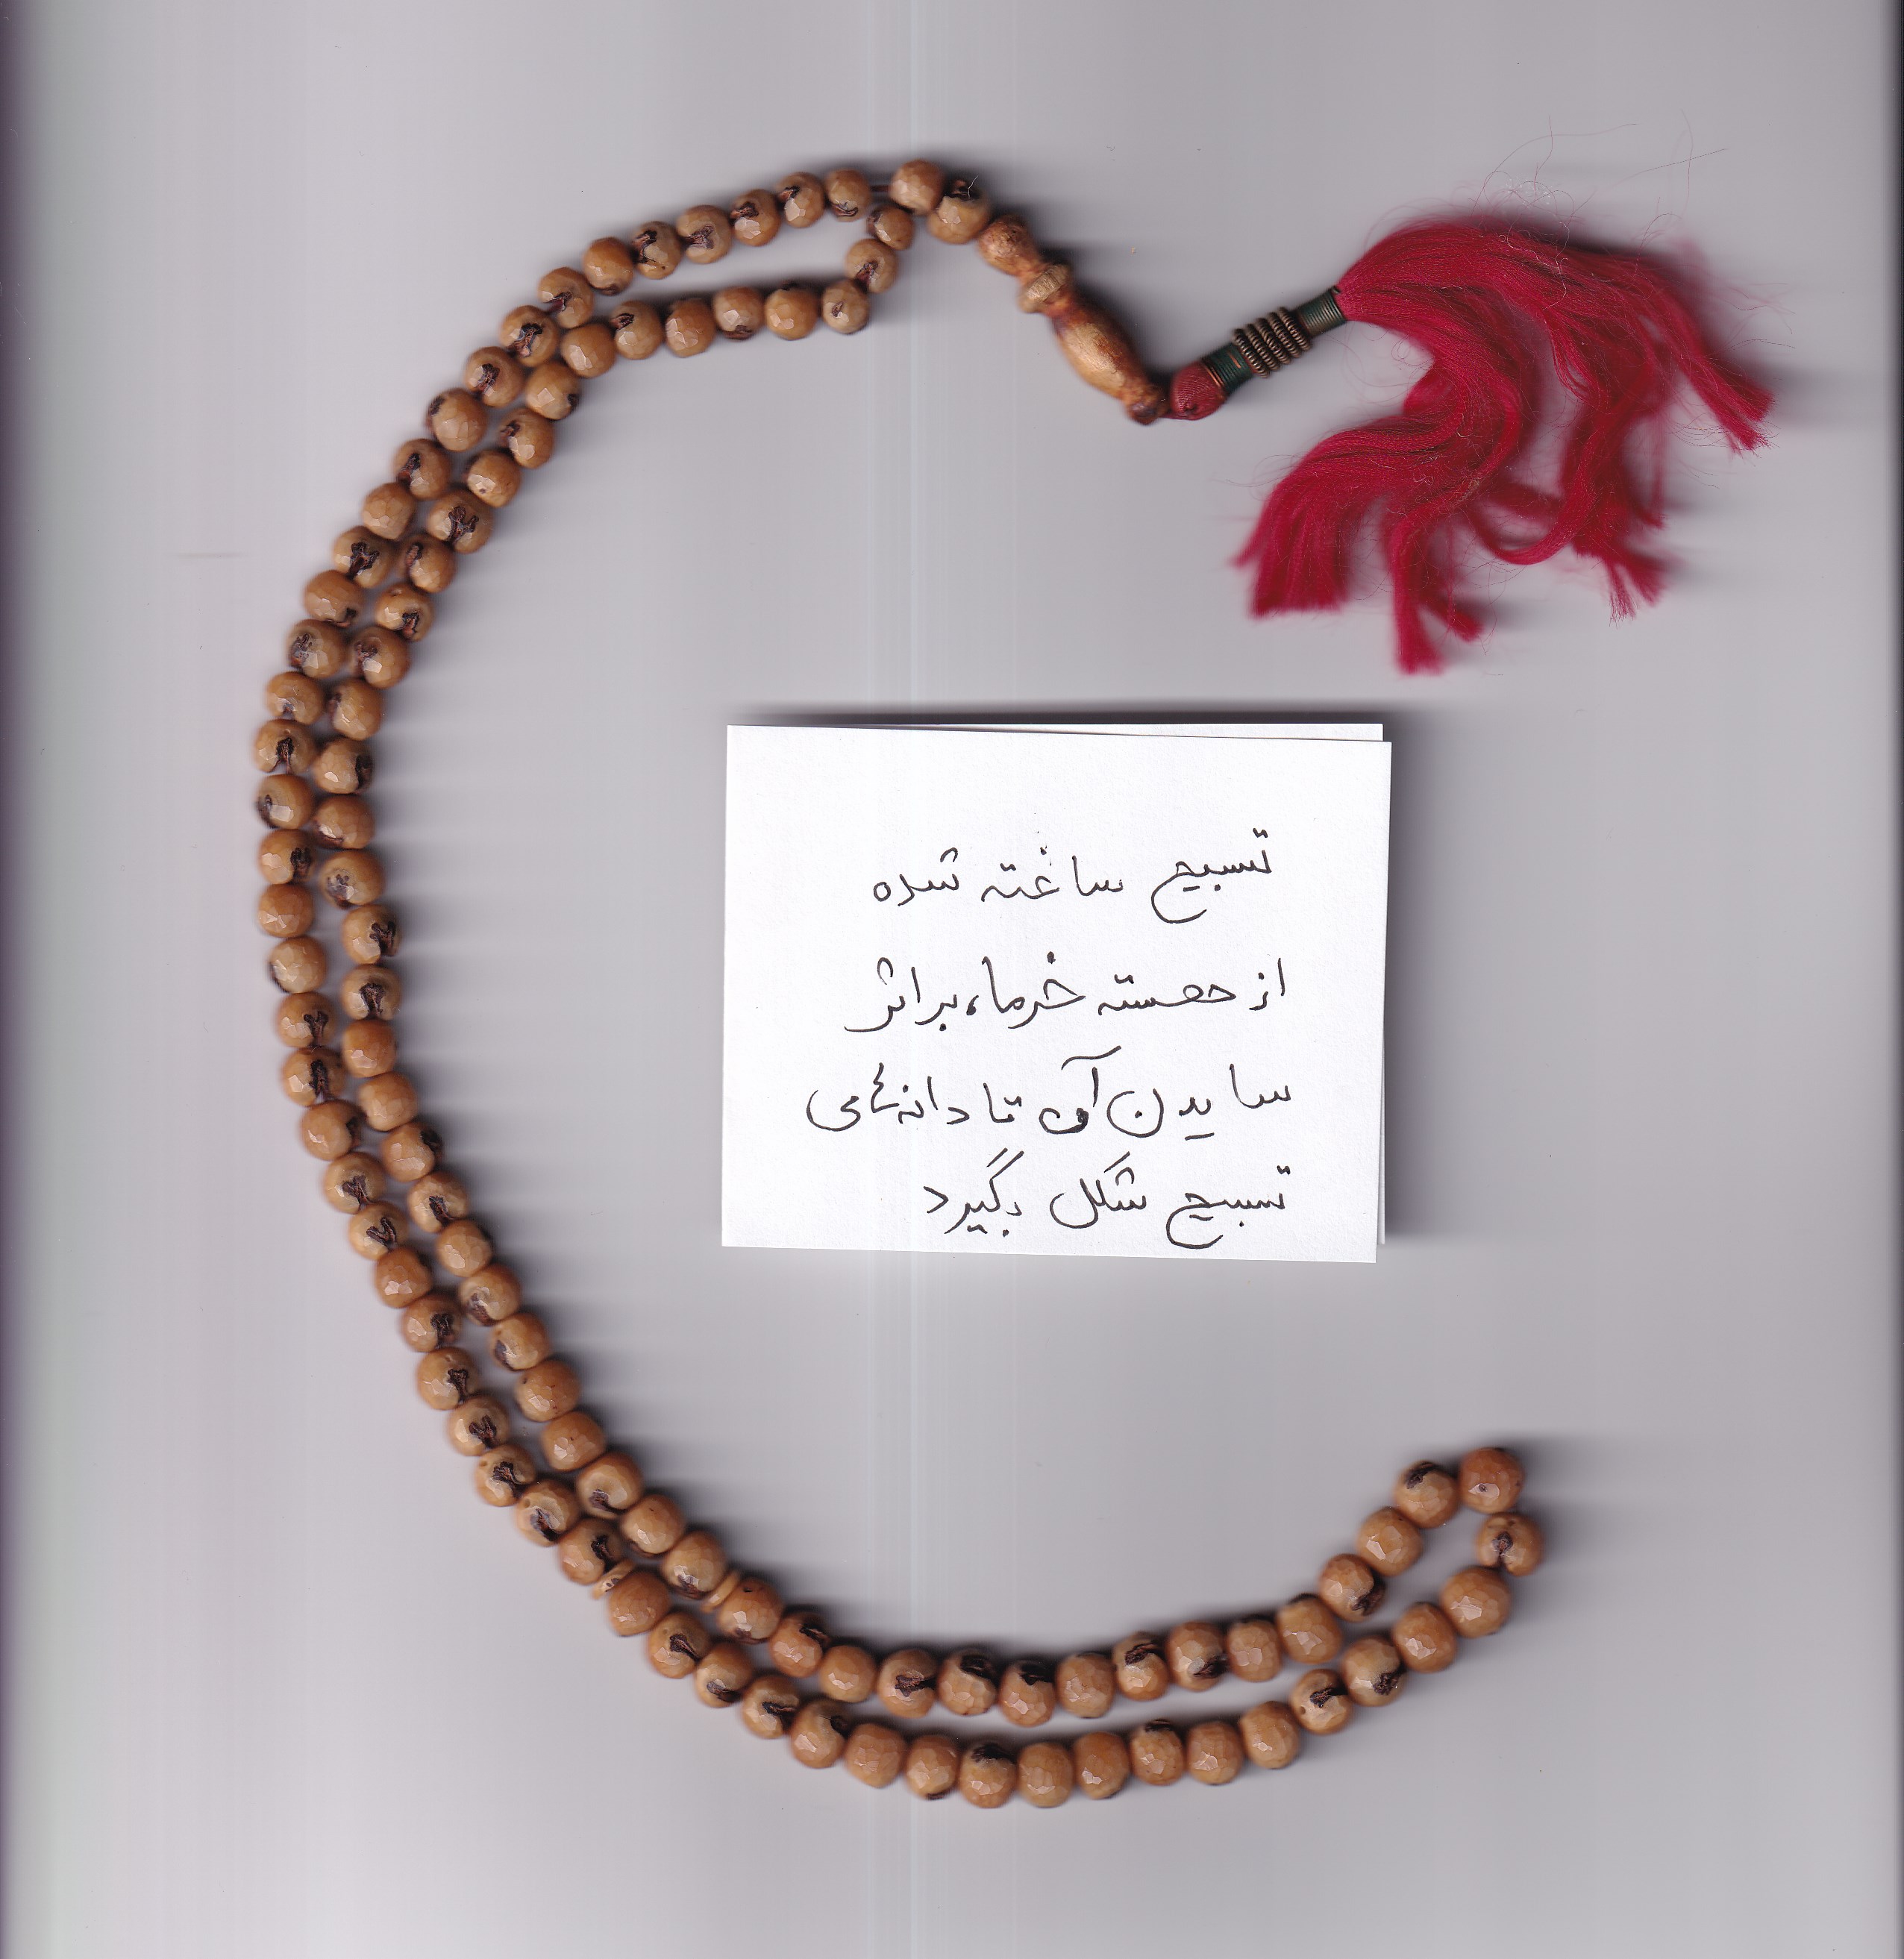 تسبیح ساخته شده
از هسته خرما، براثر
ساییدن آن تا دانه‌های
تسبیح شکل بگیرد